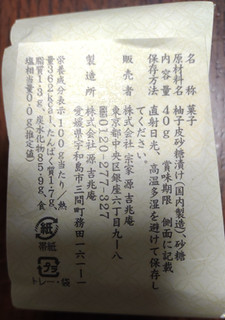 名 称 菓子
原材料名 柚子皮砂糖漬け(国内製造)、砂糖
内容量 40g 賞味期限 側面に記載
保存方法 直射日光、高温多湿を避けて保存し
てください。
販売者 株式会社 宗家 源 吉兆庵
東京都中央区銀座六丁目九ー八
0120-277-327
製造所 株式会社 源 吉兆庵
愛媛県宇和島市三間町務田一六一ー一
栄養成分表示100g当たり/熱
量362kcal、たんぱく質1.7g、
脂質1.3g、炭水化物85.9g、食
塩相当量0.0g(推定値)
紙
帯紙
プラ
トレー・袋